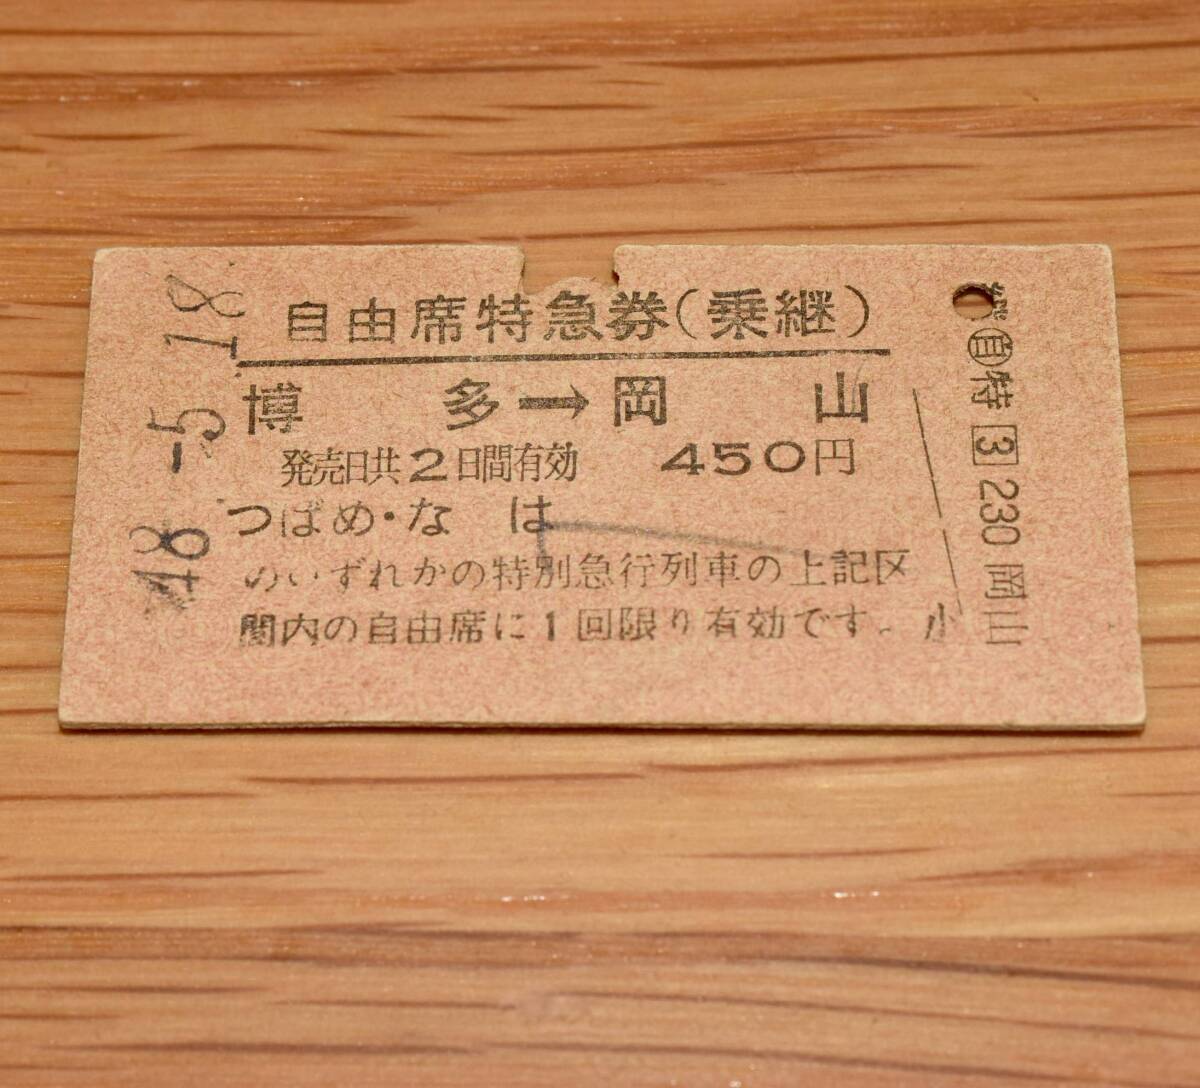 自由席特急券(乗継)
博多→岡山
発売日共2日間有効 450円
つばめ・なは
のいずれかの特別急行列車の上記区
間内の自由席に1回限り有効です。 小
48.-5.18
自特3230岡山